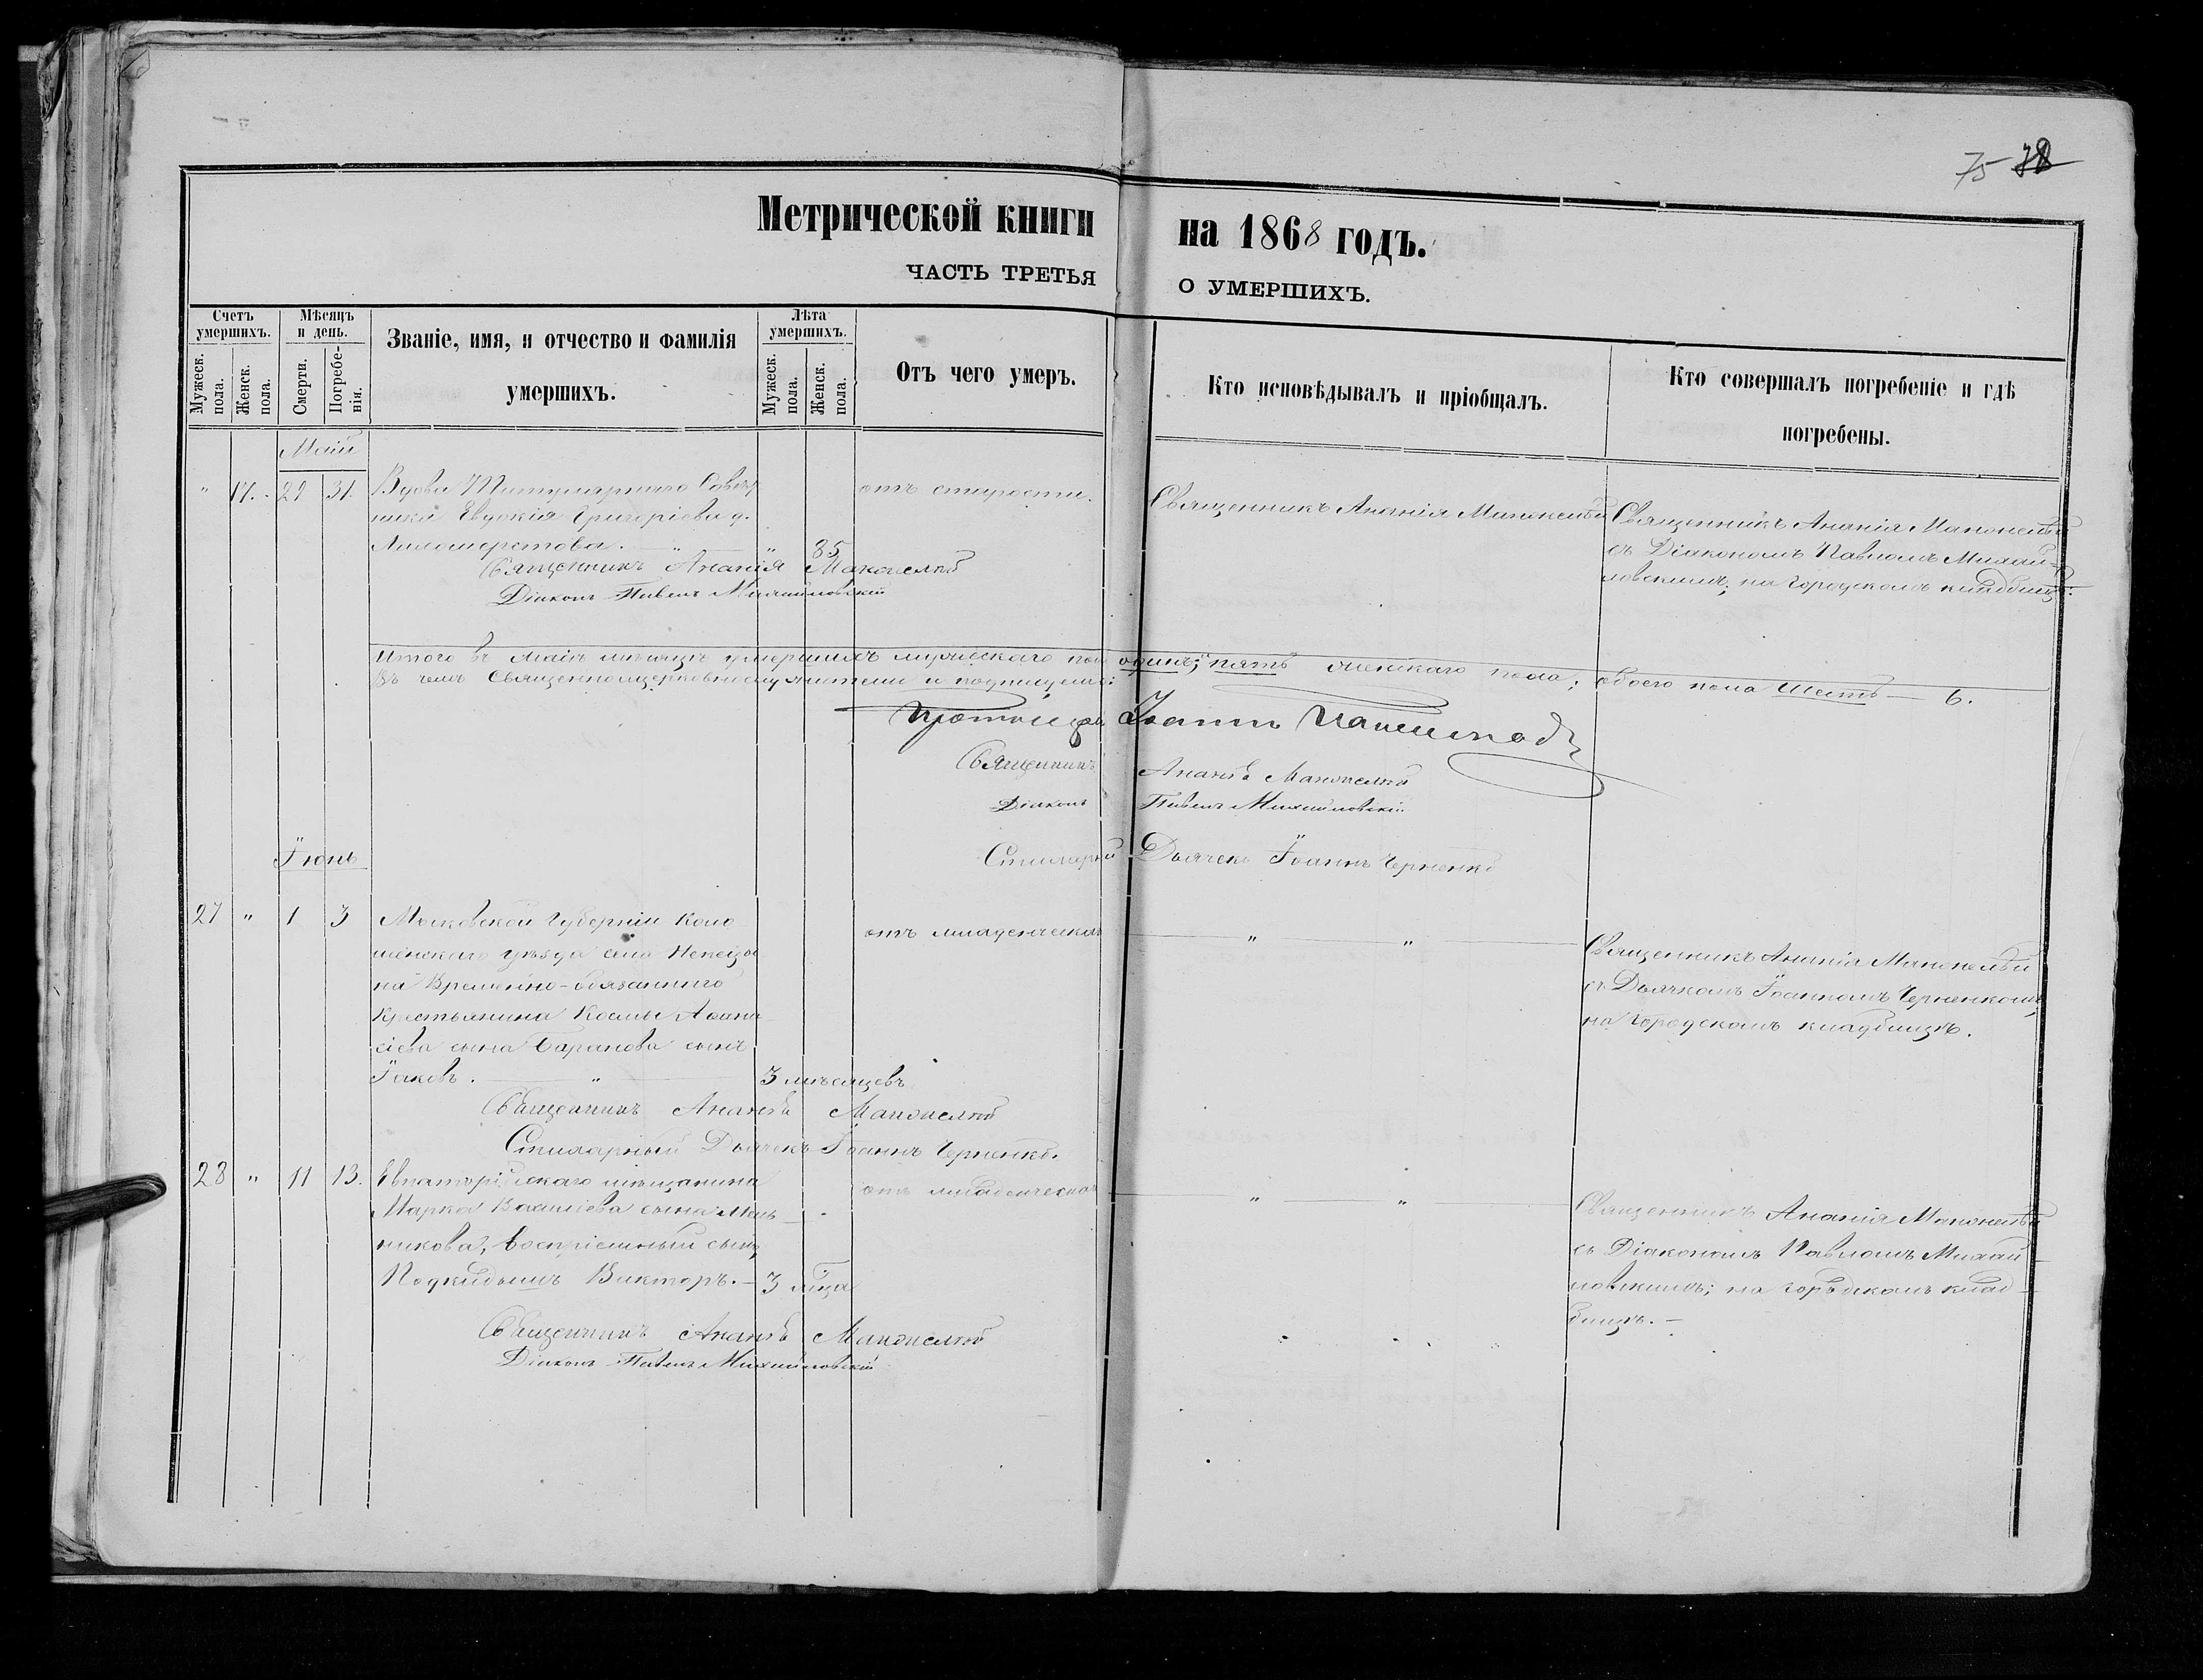 75 78
Метрической книги на 1868 годъ.
ЧАСТЬ ТРЕТЬЯ О УМЕРШИХЪ.
Счетъ умершихъ.
Мужеск. пола.
Женск. пола.
Мѣсяцъ и день.
Смерти.
Погребе-нія.
Званіе, имя, и отчество и фамилія
умершихъ.
Лѣта умершихъ.
Мужеск. пола.
Женск. пола.
Отъ чего умеръ.
Кто исповѣдывалъ и пріобщалъ.
Кто совершалъ погребеніе и гдѣ
погребены.
Маій
" 17. 29 31. Вдова Титулярнаго Совѣт
ника Евдокія Григоріева
" 85
отъ старости.
Священникъ Ананія
Священникъ Ананія
съ Діакономъ Павломъ Михай-
ловскимъ; на городскомъ кладбищѣ.
Священникъ Ананія
Діаконъ Павелъ Михайловскій
Итого въ Маіѣ мѣсяцѣ умершихъ мужескаго пола одинъ; пять женскаго пола; обоего пола шесть — 6.
Въ чемъ Священноцерковнослужители и подпишемъ:
Протоіерей Іоаннъ
Священникъ Ананія
Діаконъ Павелъ Михайловскій
Стихарный Дьячекъ Іоаннъ Черненко
Іюнь
27 " 1 3 Московской губерніи Коло
менскаго уѣзда села Непеци
на Временно-обязаннаго
Крестьянина Космы Аѳана
сіева сына Баранова сынъ
Іаковъ. — " — 3 мѣсяцевъ
отъ младенческой
" "
Священникъ Ананія
съ Дьячкомъ Іоанномъ Черненкомъ,
на городскомъ кладбищѣ.
Священникъ Ананія
Стихарный Дьячекъ Іоаннъ Черненко.
28 " 11 13. Евпаторійскаго мѣщанина
Марка Василіева сына Мель-
никова, воспріемный сынъ,
Подкидышъ Викторъ. — 3 м̃ца
отъ младенческой
" "
Священникъ Ананія
съ Діакономъ Павломъ Михай-
ловскимъ; на городскомъ клад-
бищѣ. —
Священникъ Ананія
Діаконъ Павелъ Михайловскій